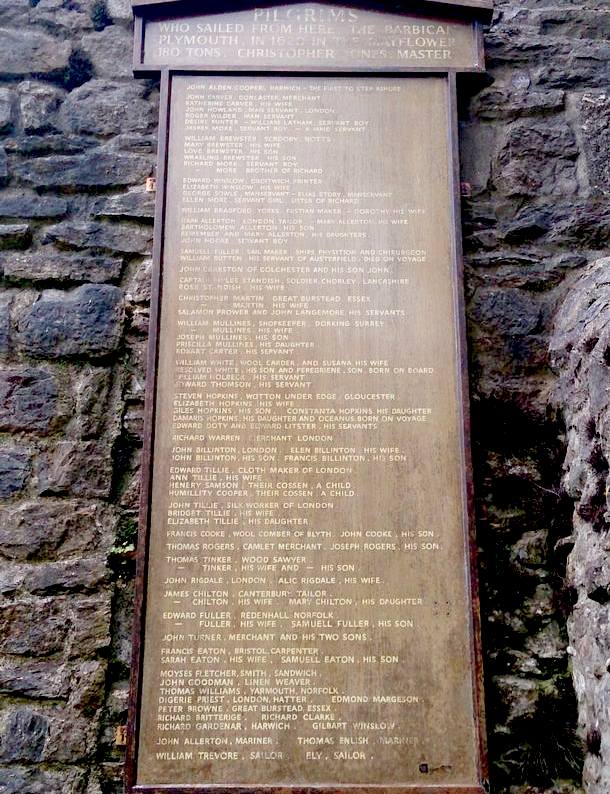 PILGRIMS
WHO SAILED FROM HERE, THE BARBICAN
PLYMOUTH, IN 1620 IN THE MAYFLOWER
180 TONS. CHRISTOPHER JONES: MASTER
JOHN ALDEN, COOPER, HARWICH - THE FIRST TO STEP ASHORE
JOHN CARVER, DONCASTER, MERCHANT
KATHERINE CARVER, HIS WIFE
JOHN HOWLAND, MAN SERVANT, LONDON
ROGER WILDER, MAN SERVANT
DESIRE MINTER - WILLIAM LATHAM, SERVANT BOY
JASPER MORE, SERVANT BOY. - A MAID SERVANT
WILLIAM BREWSTER, SCROOBY, NOTTS
MARY BREWSTER, HIS WIFE
LOVE BREWSTER, HIS SON
WRASLING BREWSTER, HIS SON
RICHARD MORE, SERVANT BOY
MORE, BROTHER OF RICHARD
EDWARD WINSLOW, DROITWICH, PRINTER
ELIZABETH WINSLOW, HIS WIFE
GEORGE SOWLE, MANSERVANT - ELIAS STORY, MANSERVANT
ELLEN MORE, SERVANT GIRL, SISTER OF RICHARD
WILLIAM BRADFORD, YORKS, FUSTIAN MAKER - DOROTHY HIS WIFE
ISAAC ALLERTON, LONDON TAILOR - MARY ALLERTON, HIS WIFE
BARTHOLOMEW ALLERTON, HIS SON
REMEMBER AND MARY ALLERTON, HIS DAUGHTERS
JOHN HOOKE, SERVANT BOY
SAMUELL FULLER, SAIL MAKER, SHIPS PHYSITION AND CHIEURGEON
WILLIAM BUTTEN, HIS SERVANT OF AUSTERFIELD, DIED ON VOYAGE
JOHN CRAKSTON OF COLCHESTER AND HIS SON JOHN.
CAPTAIN MYLES STANDISH, SOLDIER, CHORLEY, LANCASHIRE
ROSE STANDISH, HIS WIFE
CHRISTOPHER MARTIN GREAT BURSTEAD ESSEX
- MARTIN HIS WIFE
SALAMON PROWER AND JOHN LANGEMORE, HIS SERVANTS
WILLIAM MULLINES, SHOPKEEPER, DORKING SURREY.
- MULLINES, HIS WIFE
JOSEPH MULLINES, HIS SON
PRISCILLA MULLINES, HIS DAUGHTER
ROBART CARTER, HIS SERVANT
WILLIAM WHITE, WOOL CARDER, AND SUSANA HIS WIFE
RESOLVED WHITE, HIS SON AND PEREGRIENE, SON, BORN ON BOARD
WILLIAM HOLBECK, HIS SERVANT
EDWARD THOMSON, HIS SERVANT
STEVEN HOPKINS, WOTTON UNDER EDGE, GLOUCESTER
ELIZABETH HOPKINS, HIS WIFE
GILES HOPKINS, HIS SON, CONSTANTA HOPKINS, HIS DAUGHTER
DAMARIS HOPKINS, HIS DAUGHTER AND OCEANUS BORN ON VOYAGE
EDWARD DOTY AND EDWARD LITSTER, HIS SERVANTS
RICHARD WARREN, MERCHANT LONDON
JOHN BILLINTON, LONDON. ELEN BILLINTON, HIS WIFE.
JOHN BILLINTON, HIS SON. FRANCIS BILLINTON, HIS SON
EDWARD TILLIE, CLOTH MAKER OF LONDON
ANN TILLIE, HIS WIFE
HENERY SAMSON, THEIR COSSEN, A CHILD
HUMILLITY COOPER, THEIR COSSEN, A CHILD
JOHN TILLIE, SILK WORKER OF LONDON
BRIDGET TILLIE, HIS WIFE
ELIZABETH TILLIE, HIS DAUGHTER
FRANCIS COOKE, WOOL COMBER OF BLYTH, JOHN COOKE, HIS SON.
THOMAS ROGERS, CAMLET MERCHANT, JOSEPH ROGERS, HIS SON.
THOMAS TINKER, WOOD SAWYER
- TINKER, HIS WIFE AND - HIS SON
JOHN RIGDALE, LONDON, ALIC RIGDALE, HIS WIFE.
JAMES CHILTON, CANTERBURY TAILOR.
- CHILTON, HIS WIFE. MARY CHILTON, HIS DAUGHTER
EDWARD FULLER, REDENHALL NORFOLK
- FULLER, HIS WIFE, SAMUELL FULLER, HIS SON
JOHN TURNER, MERCHANT AND HIS TWO SONS.
FRANCIS EATON, BRISTOL, CARPENTER.
SARAH EATON, HIS WIFE, SAMUELL EATON, HIS SON.
MOYSES FLETCHER, SMITH, SANDWICH.
JOHN GOODMAN, LINEN WEAVER.
THOMAS WILLIAMS, YARMOUTH, NORFOLK.
DIGERIE PRIEST, LONDON, HATTER. EDMOND MARGESON
PETER BROWNE, GREAT BURSTEAD, ESSEX.
RICHARD BRITTERIGE. RICHARD CLARKE.
RICHARD GARDENAR, HARWICH. GILBART WINSLOW.
JOHN ALLERTON, MARINER. THOMAS ENLISH, MARINER.
WILLIAM TREVORE, SAILOR. ELY, SAILOR.